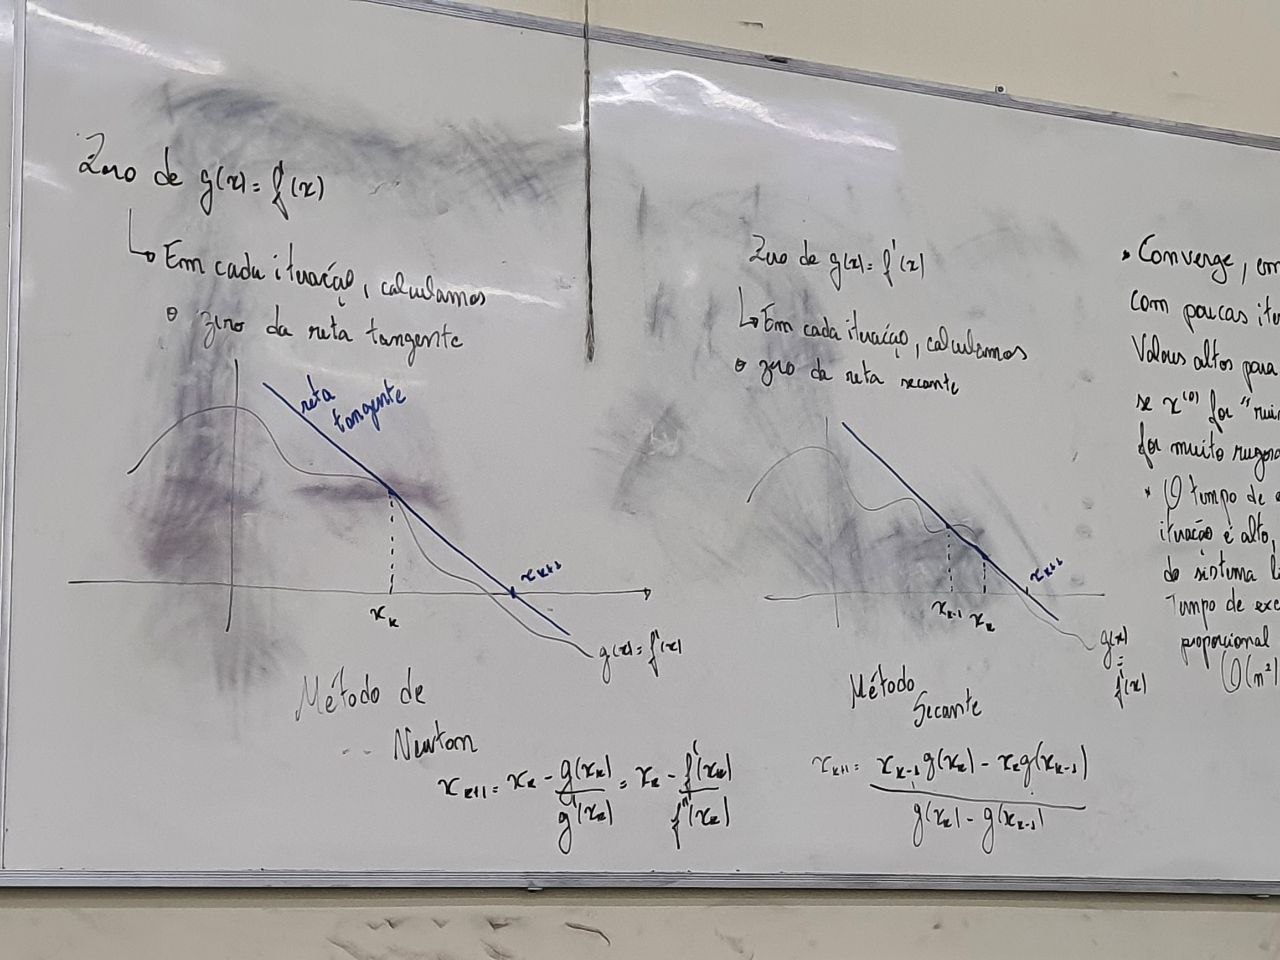 Zero de g(x) = f'(x)
↳ Em cada iteração, calculamos
o zero da reta tangente
reta
tangente
x_k
x_{k+1}
g(x) = f'(x)
Método de
Newton
x_{k+1} = x_k - g(x_k)/g'(x_k) = x_k - f'(x_k)/f''(x_k)
Zero de g(x) = f'(x)
↳ Em cada iteração, calculamos
o zero da reta secante
x_{k-1}
x_k
x_{k+1}
g(x)
=
f'(x)
Método
Secante
x_{k+1} = (x_{k-1} g(x_k) - x_k g(x_{k-1})) / (g(x_k) - g(x_{k-1}))
• Converge, em
com poucas ite
Valores altos para
se x^{(0)} for "ruim
for muito rugosa
• O tempo de
iteração é alto,
do sistema li
Tempo de exe
proporcional
O(n²)